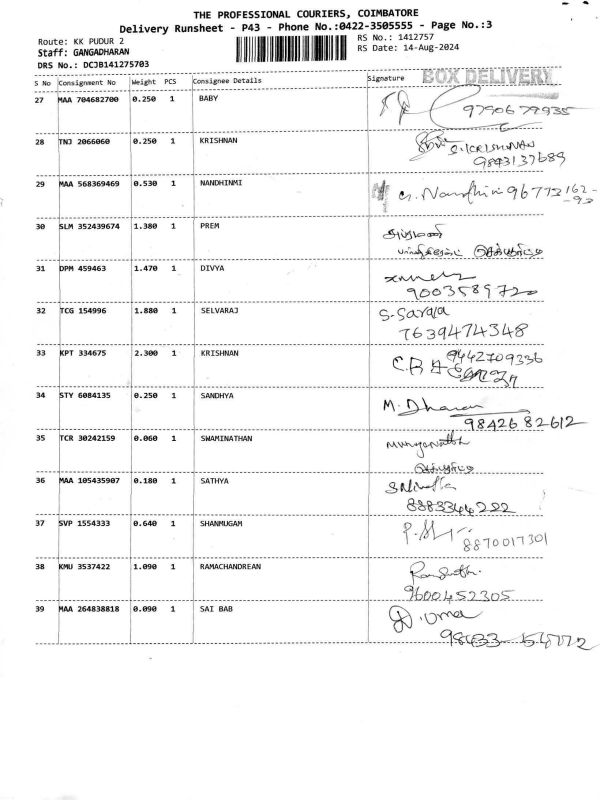 THE PROFESSIONAL COURIERS, COIMBATORE
Delivery Runsheet - P43 - Phone No.:0422-3505555 - Page No.:3
Route: KK PUDUR 2
RS No.: 1412757
Staff: GANGADHARAN
RS Date: 14-Aug-2024
DRS No.: DCJB141275703
S No Consignment No Weight PCS Consignee Details Signature BOX DELIVERY
27 MAA 704682700 0.250 1 BABY 9790679935
28 TNJ 2066060 0.250 1 KRISHNAN S.KRISHNAN
9843137689
29 MAA 568369469 0.530 1 NANDHINMI G. Nandhini 96773 162-
-93
30 SLM 352439674 1.380 1 PREM
31 DPM 459463 1.470 1 DIVYA
9003589720
32 TCG 154996 1.880 1 SELVARAJ S-Saroja
7639474348
33 KPT 334675 2.300 1 KRISHNAN 9442709336
34 STY 6084135 0.250 1 SANDHYA M. Dharan
9842682612
35 TCR 30242159 0.060 1 SWAMINATHAN
36 MAA 105435907 0.180 1 SATHYA
8883344222
37 SVP 1554333 0.640 1 SHANMUGAM
8870017301
38 KMU 3537422 1.090 1 RAMACHANDREAN
9600452305
39 MAA 264838818 0.090 1 SAI BAB D. Uma